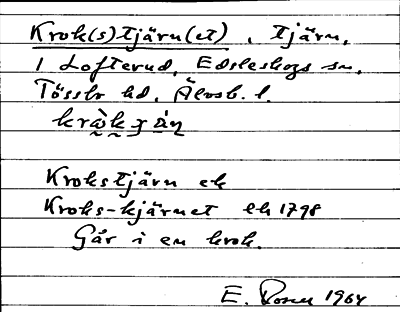 Krok(s)tjärn(et), tjärn,
i Lofterud, Edsleskogs sn,
Tössbo hd, Älvsb. l.
Krokstjärn ek
Kroks-kjärnet lh 1798
Går i en krok.
E. 1964